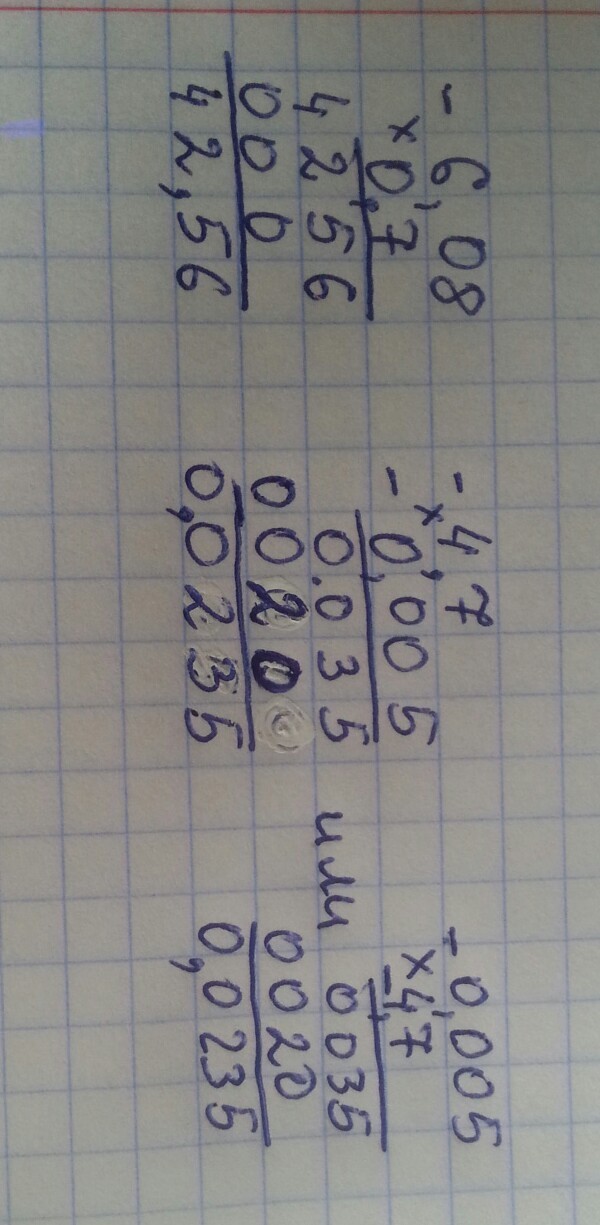 - 6,08
× 0,7
4256
000
42,56
- 4,7
× - 0,005
0.035
0020
0,0235
или
- 0,005
× - 4,7
0035
0020
0,0235